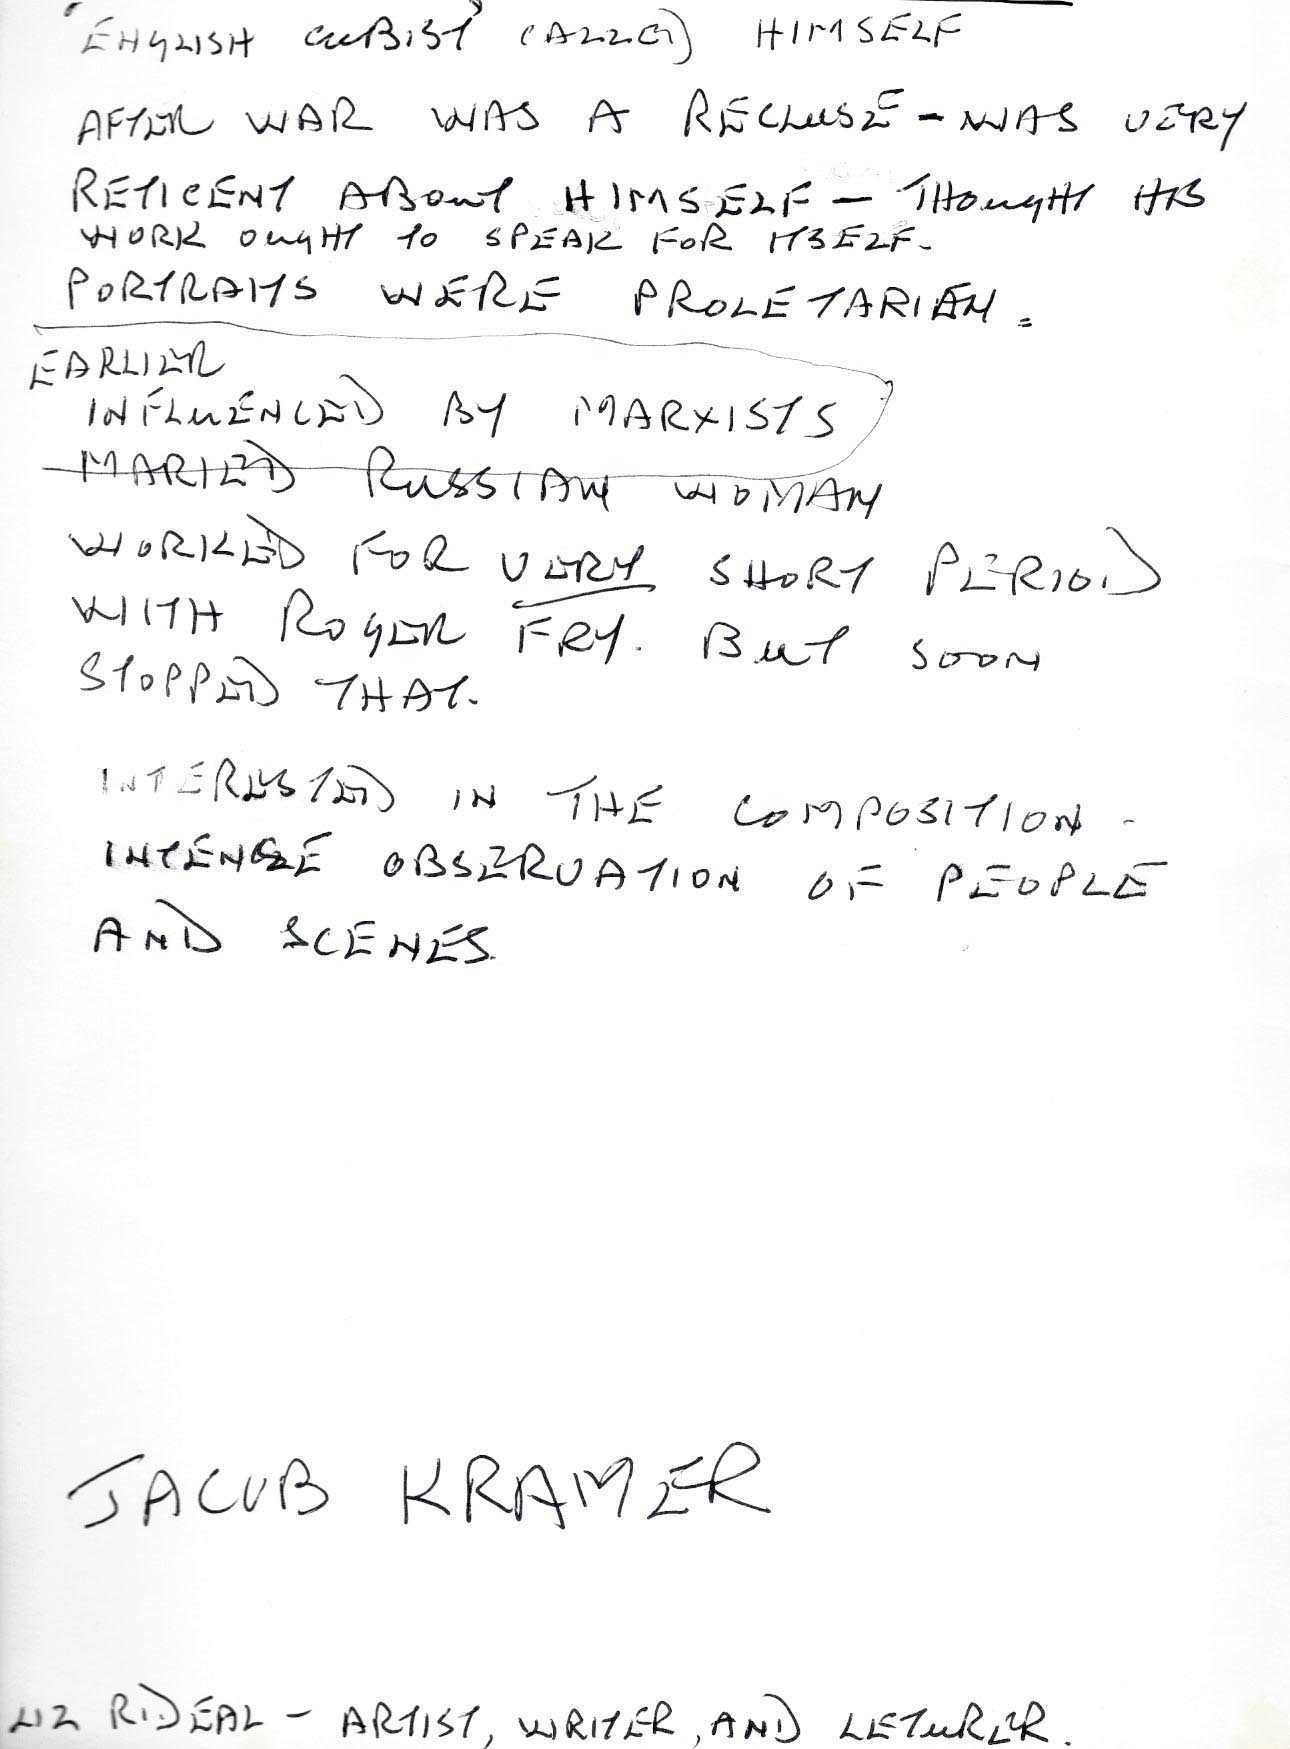 'ENGLISH CUBIST' CALLED HIMSELF
AFTER WAR WAS A RECLUSE – WAS VERY
RETICENT ABOUT HIMSELF – THOUGHT HIS
WORK OUGHT TO SPEAK FOR ITSELF.
PORTRAITS WERE PROLETARIAN.
EARLIER
INFLUENCED BY MARXISTS
MARIED RUSSIAN WOMAN
WORKED FOR VERY SHORT PERIOD
WITH ROGER FRY. BUT SOON
STOPPED THAT.
INTERESTED IN THE COMPOSITION -
INTENSE OBSERVATION OF PEOPLE
AND SCENES.
JACOB KRAMER
LIZ RIDEAL – ARTIST, WRITER, AND LETURER.